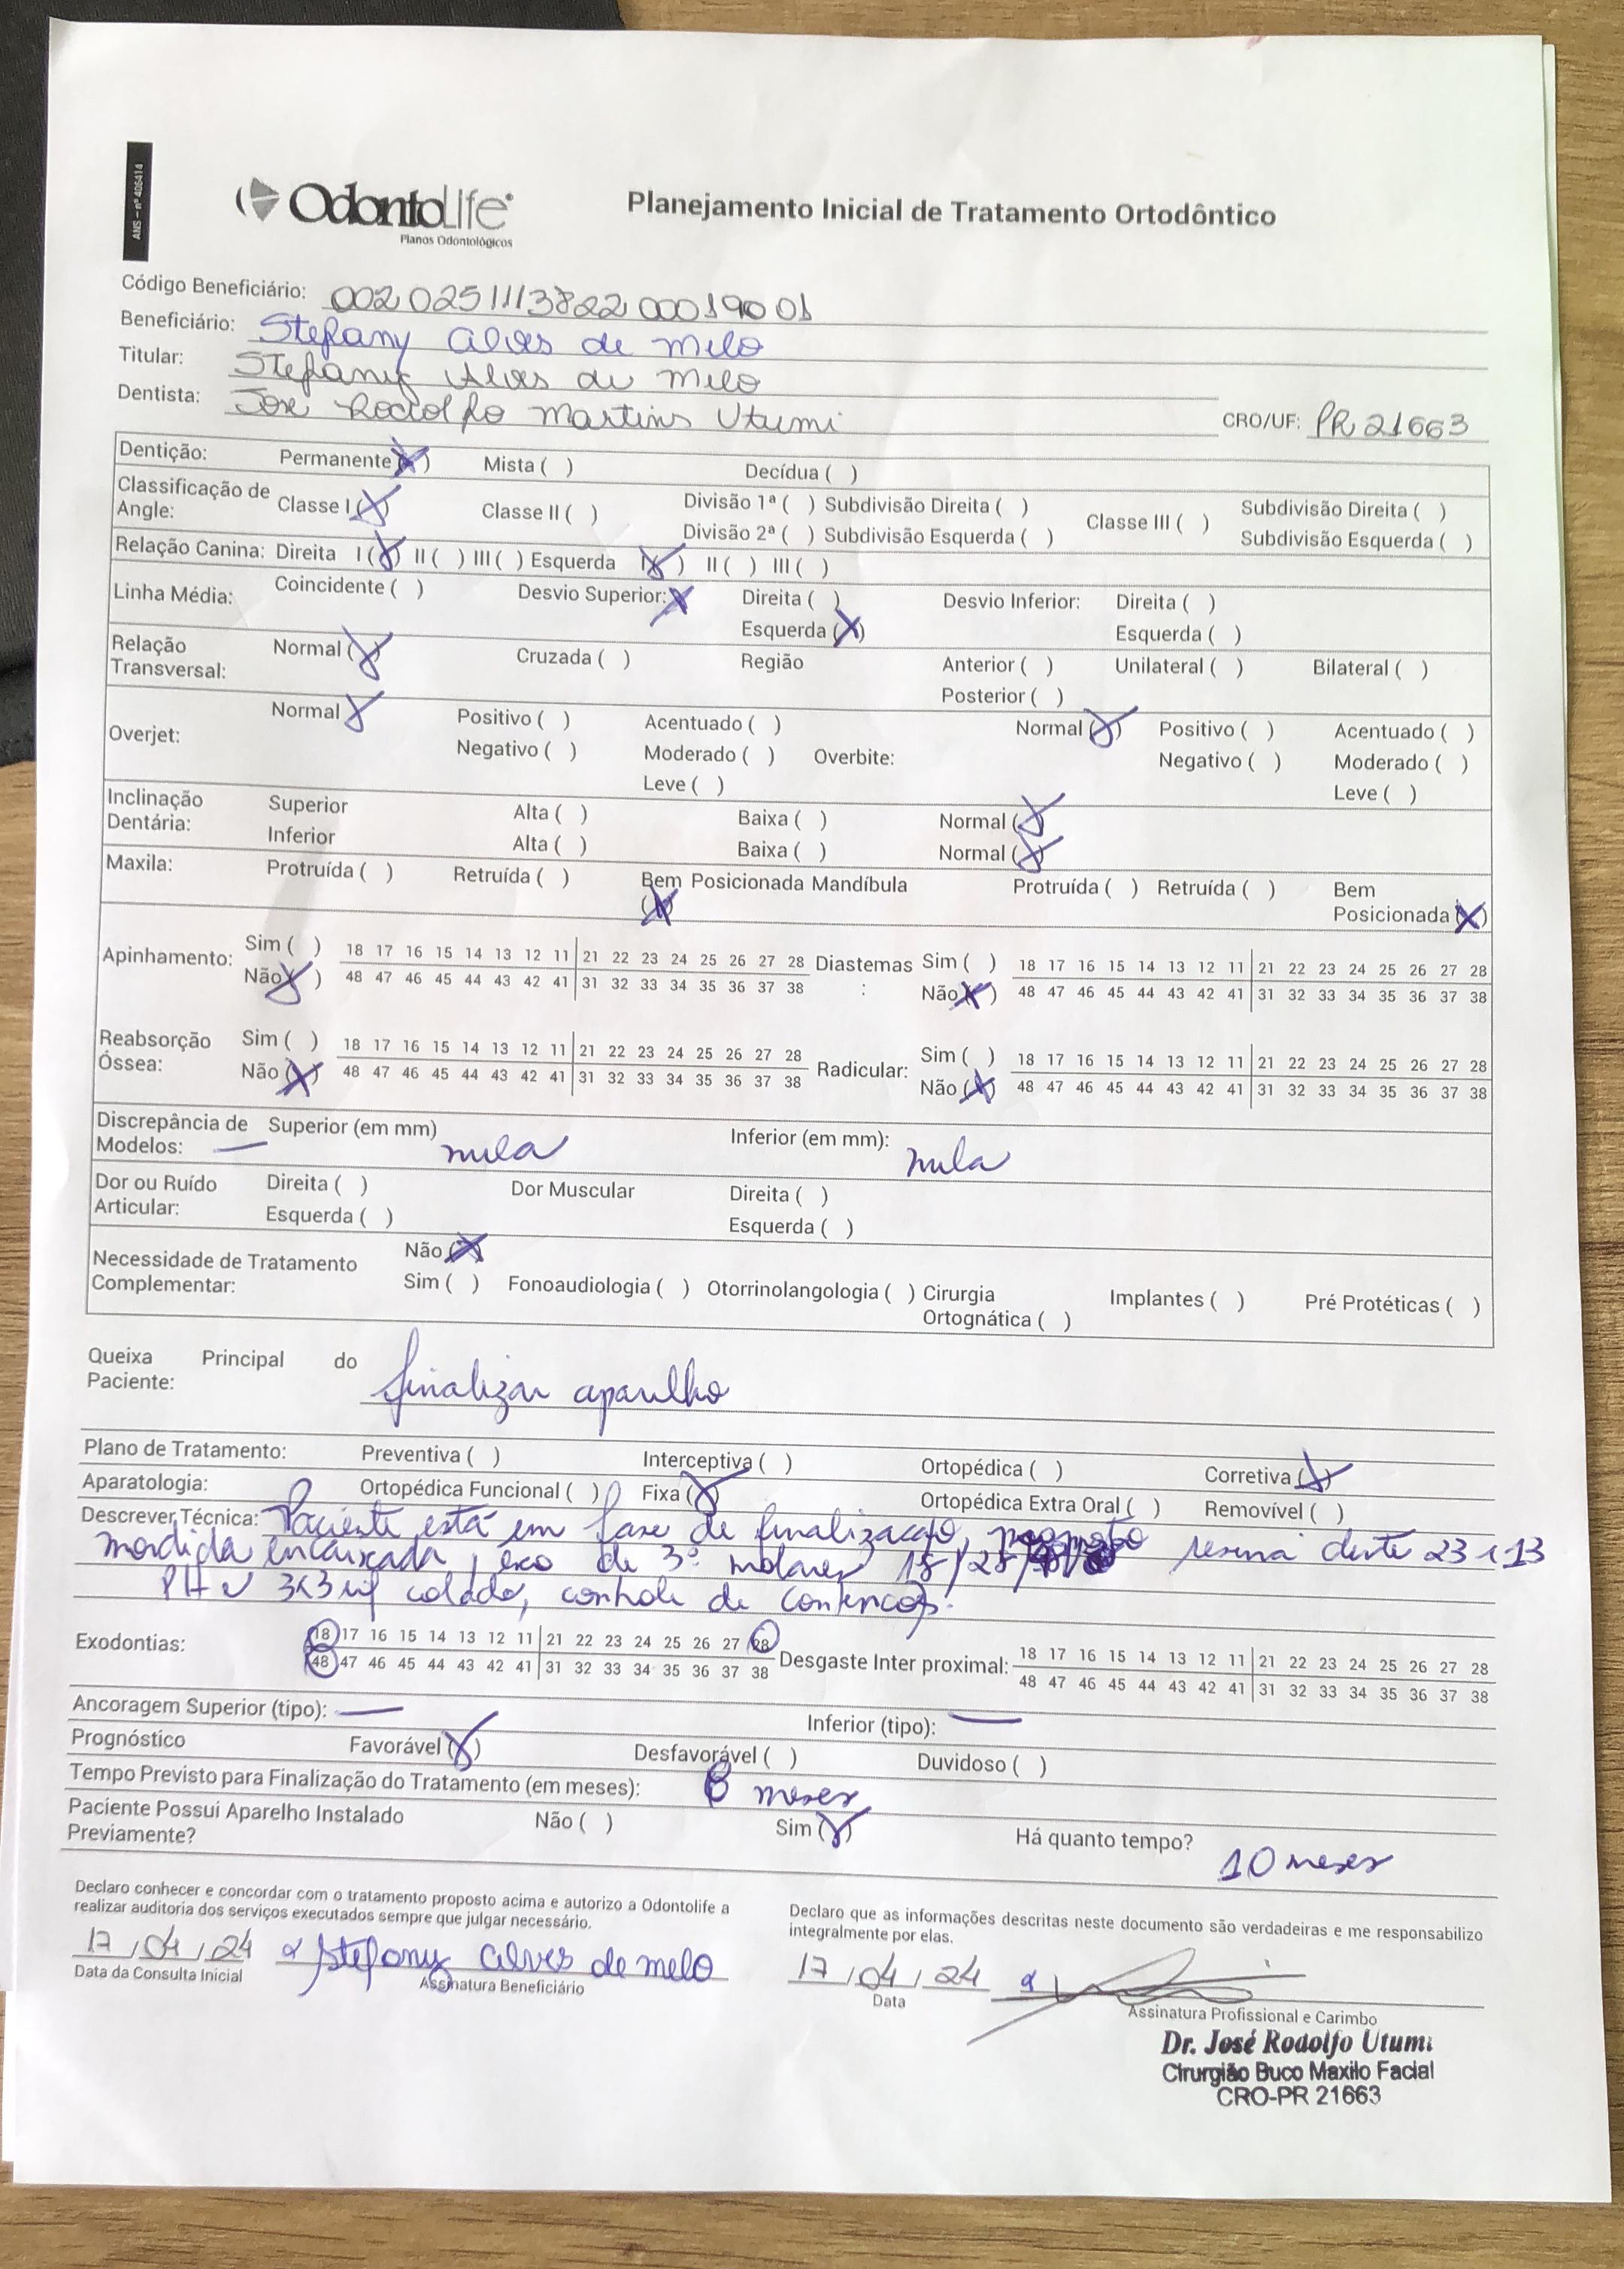 ANS - nº 406414
OdontoLife
Planos Odontológicos
Planejamento Inicial de Tratamento Ortodôntico
Código Beneficiário: 00202511138220001900 1
Beneficiário: Stefany Alves de Melo
Titular: Stefany Alves de Melo
Dentista: Jose Rodolfo Martins Utumi CRO/UF: PR 21663
Dentição: Permanente (X) Mista ( ) Decídua ( )
Classificação de Angle: Classe I (X) Classe II ( ) Divisão 1ª ( ) Subdivisão Direita ( ) Classe III ( ) Subdivisão Direita ( )
Divisão 2ª ( ) Subdivisão Esquerda ( ) Subdivisão Esquerda ( )
Relação Canina: Direita I (X) II ( ) III ( ) Esquerda I (X) II ( ) III ( )
Linha Média: Coincidente ( ) Desvio Superior: X Direita ( ) Desvio Inferior: Direita ( )
Esquerda (X) Esquerda ( )
Relação Transversal: Normal (X) Cruzada ( ) Região Anterior ( ) Unilateral ( ) Bilateral ( )
Posterior ( )
Overjet: Normal (X) Positivo ( ) Acentuado ( ) Overbite: Normal (X) Positivo ( ) Acentuado ( )
Negativo ( ) Moderado ( ) Negativo ( ) Moderado ( )
Leve ( ) Leve ( )
Inclinação Dentária: Superior Alta ( ) Baixa ( ) Normal (X)
Inferior Alta ( ) Baixa ( ) Normal (X)
Maxila: Protruída ( ) Retruída ( ) Bem Posicionada (X) Mandíbula Protruída ( ) Retruída ( ) Bem Posicionada (X)
Apinhamento: Sim ( ) 18 17 16 15 14 13 12 11 21 22 23 24 25 26 27 28 Diastemas: Sim ( ) 18 17 16 15 14 13 12 11 21 22 23 24 25 26 27 28
Não (X) 48 47 46 45 44 43 42 41 31 32 33 34 35 36 37 38 Não (X) 48 47 46 45 44 43 42 41 31 32 33 34 35 36 37 38
Reabsorção Óssea: Sim ( ) 18 17 16 15 14 13 12 11 21 22 23 24 25 26 27 28 Radicular: Sim ( ) 18 17 16 15 14 13 12 11 21 22 23 24 25 26 27 28
Não (X) 48 47 46 45 44 43 42 41 31 32 33 34 35 36 37 38 Não (X) 48 47 46 45 44 43 42 41 31 32 33 34 35 36 37 38
Discrepância de Modelos: — Superior (em mm) nula Inferior (em mm): nula
Dor ou Ruído Articular: Direita ( ) Dor Muscular Direita ( )
Esquerda ( ) Esquerda ( )
Necessidade de Tratamento Complementar: Não (X)
Sim ( ) Fonoaudiologia ( ) Otorrinolangologia ( ) Cirurgia Ortognática ( ) Implantes ( ) Pré Protéticas ( )
Queixa Principal do Paciente: finalizar aparelho
Plano de Tratamento: Preventiva ( ) Interceptiva ( ) Ortopédica ( ) Corretiva (X)
Aparatologia: Ortopédica Funcional ( ) Fixa (X) Ortopédica Extra Oral ( ) Removível ( )
Descrever Técnica: Paciente está em fase de finalização, resina dente 23 e 13
mordida encaixada, exo de 3º molares 18/28/
3x3 inf colado, controle de contenção.
Exodontias: 18 17 16 15 14 13 12 11 21 22 23 24 25 26 27 28 Desgaste Inter proximal: 18 17 16 15 14 13 12 11 21 22 23 24 25 26 27 28
48 47 46 45 44 43 42 41 31 32 33 34 35 36 37 38 48 47 46 45 44 43 42 41 31 32 33 34 35 36 37 38
Ancoragem Superior (tipo): — Inferior (tipo): —
Prognóstico Favorável (X) Desfavorável ( ) Duvidoso ( )
Tempo Previsto para Finalização do Tratamento (em meses): meses
Paciente Possui Aparelho Instalado Previamente? Não ( ) Sim (X) Há quanto tempo? 10 meses
Declaro conhecer e concordar com o tratamento proposto acima e autorizo a Odontolife a
realizar auditoria dos serviços executados sempre que julgar necessário.
17/04/24 Stefany Alves de Melo
Data da Consulta Inicial Assinatura Beneficiário
Declaro que as informações descritas neste documento são verdadeiras e me responsabilizo
integralmente por elas.
17/04/24
Data Assinatura Profissional e Carimbo
Dr. José Rodolfo Utumi
Cirurgião Buco Maxilo Facial
CRO-PR 21663